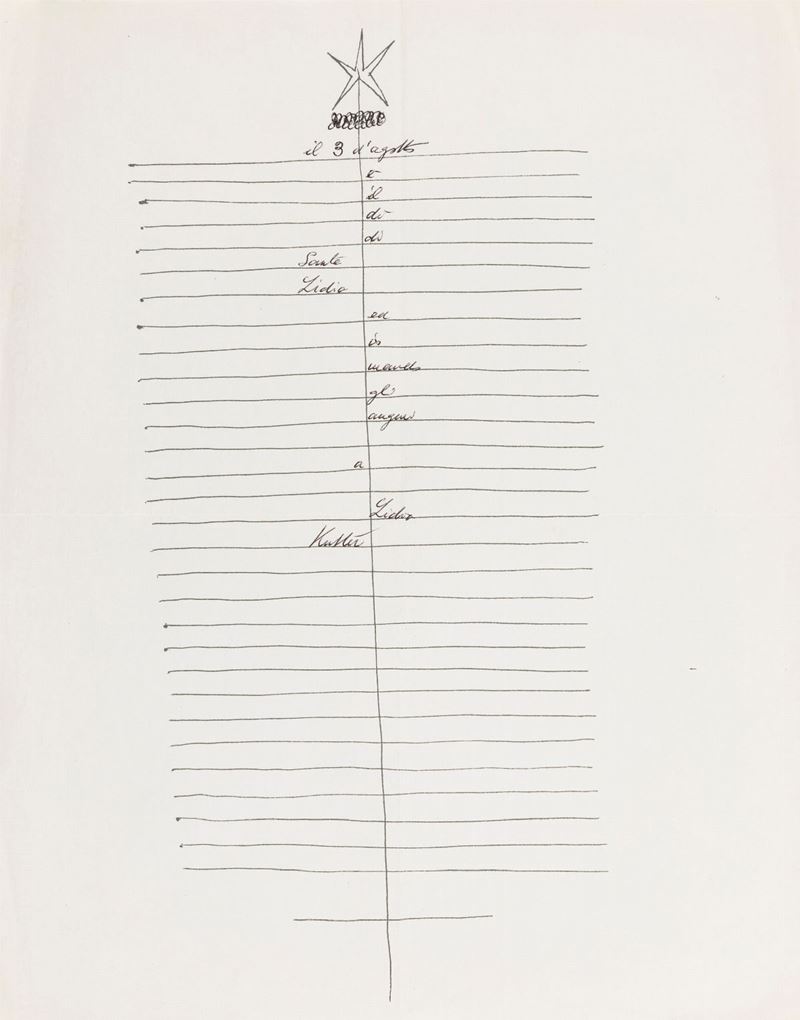 il 3 d'agosto
è
il
dì
di
Santa
Lidia
ed
io
mando
gli
auguri
a
Lidia